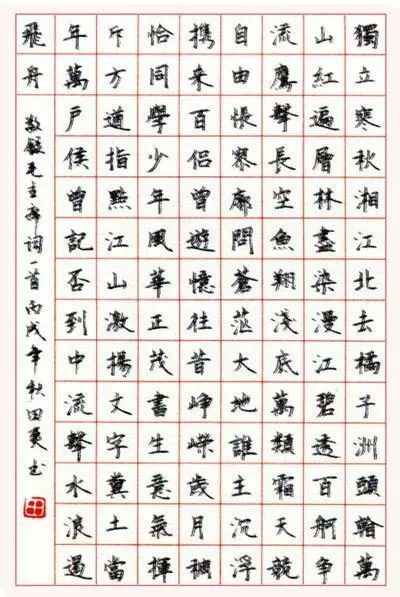 獨立寒秋湘江北去橘子洲頭看萬
山紅遍層林盡染漫江碧透百舸争
流鷹擊長空魚翔淺底萬類霜天競
自由悵寥廓問蒼茫大地誰主沉浮
携來百侣曾遊憶往昔崢嶸歲月稠
恰同學少年風華正茂書生意氣揮
斥方遒指點江山激揚文字糞土當
年萬户侯曾記否到中流擊水浪遏
飛舟
敬録毛主席詞一首丙戌年秋田书
田